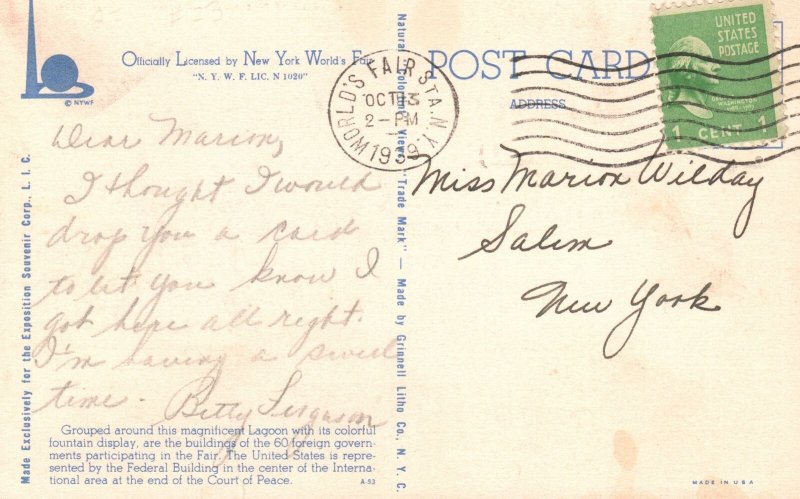 Officially Licensed by New York World's Fair
"N. Y. W. F. LIC. N 1020"
© NYWF
POST CARD
ADDRESS
WORLD'S FAIR STA. N.Y.
OCT 13
2 - PM
1939
UNITED
STATES
POSTAGE
WASHINGTON
1 CENT 1
Dear Marion,
I thought I would
drop you a card
to let you know I
got here all right.
I'm having a swell
time -
Betty Ferguson
Miss Marion Wilday
Salem
New York
Grouped around this magnificent Lagoon with its colorful
fountain display, are the buildings of the 60 foreign govern-
ments participating in the Fair. The United States is repre-
sented by the Federal Building in the center of the Interna-
tional area at the end of the Court of Peace.
A-93
Made Exclusively for the Exposition Souvenir Corp., L. I. C.
Natural Color Views "Trade Mark" — Made by Grinnell Litho Co., N. Y. C.
MADE IN U S A